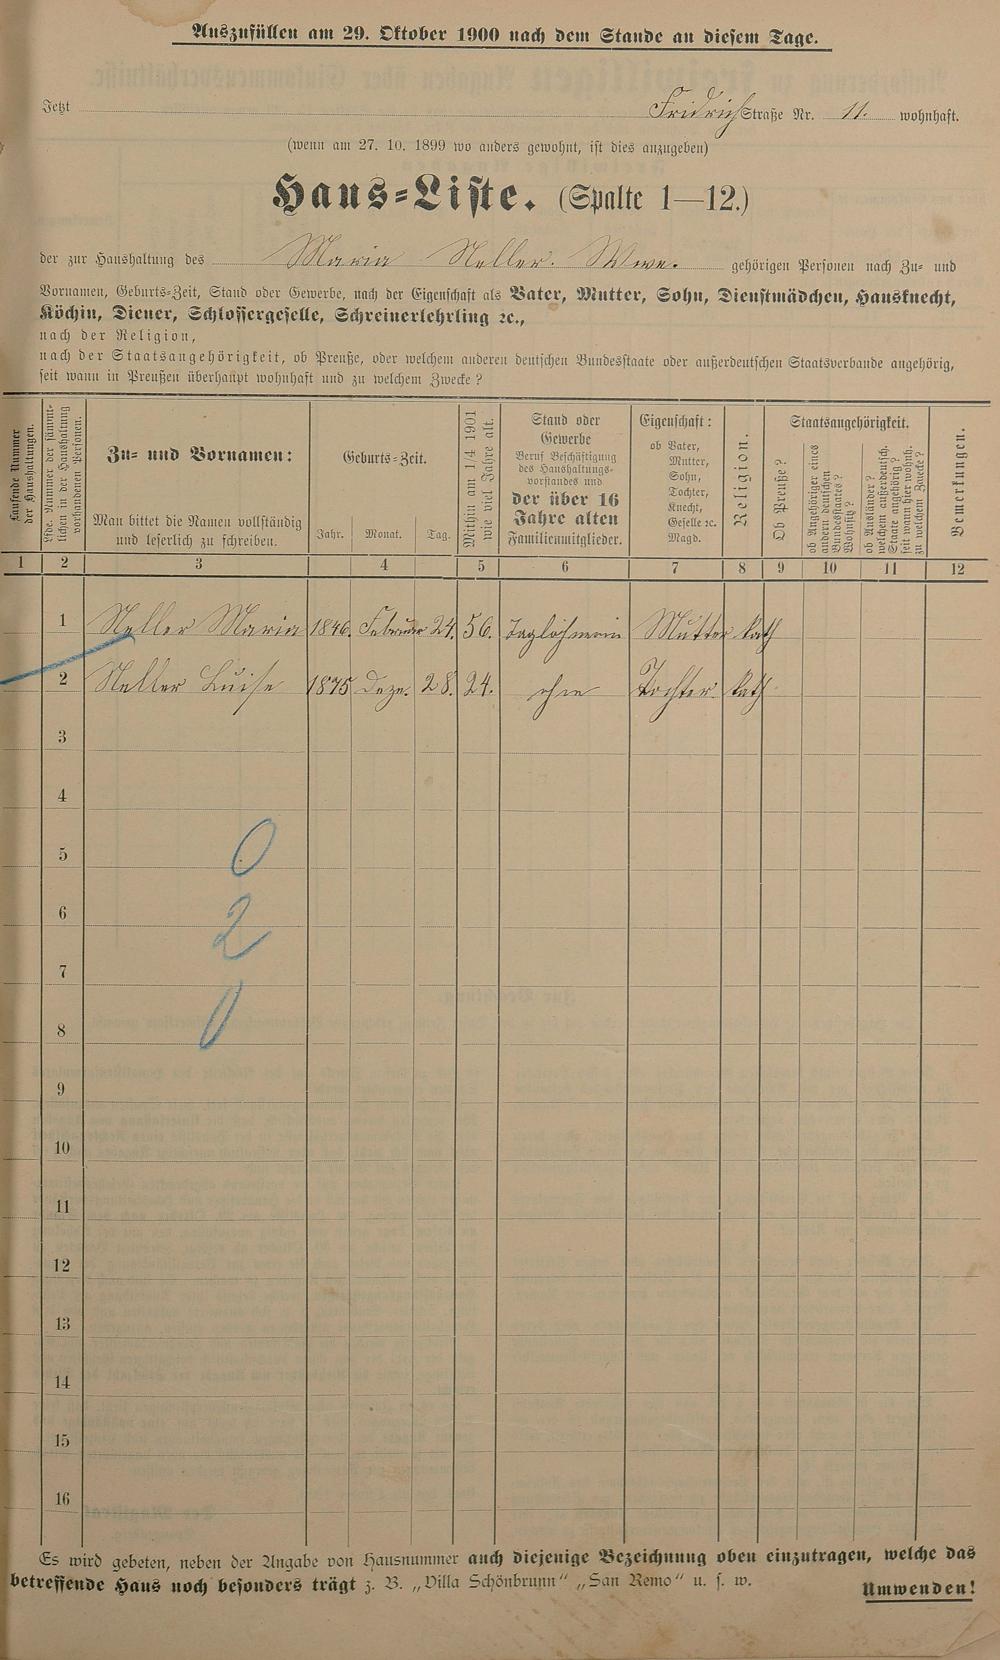 Auszufüllen am 29. Oktober 1900 nach dem Stande an diesem Tage.
Jetzt Fridrich Straße Nr. 11. wohnhaft.
(wenn am 27. 10. 1899 wo anders gewohnt, ist dies anzugeben)
Haus=Liste. (Spalte 1—12.)
der zur Haushaltung des Maria Neller. Wwe. gehörigen Personen nach Zu= und
Vornamen, Geburts=Zeit, Stand oder Gewerbe, nach der Eigenschaft als Vater, Mutter, Sohn, Dienstmädchen, Hausknecht,
Köchin, Diener, Schlossergeselle, Schreinerlehrling ꝛc.,
nach der Religion,
nach der Staatsangehörigkeit, ob Preuße, oder welchem anderen deutschen Bundesstaate oder außerdeutschen Staatsverbande angehörig,
seit wann in Preußen überhaupt wohnhaft und zu welchem Zwecke?
Laufende Nummer
der Haushaltungen.
Lfde. Nummer der sämmt=
lichen in der Haushaltung
vorhandenen Personen.
Zu= und Vornamen:
Man bittet die Namen vollständig
und leserlich zu schreiben.
Geburts=Zeit.
Jahr. Monat. Tag.
Mithin am 1/4 1901
wie viel Jahre alt.
Stand oder
Gewerbe
Beruf Beschäftigung
des Haushaltungs=
vorstandes und
der über 16
Jahre alten
Familienmitglieder.
Eigenschaft:
ob Vater,
Mutter,
Sohn,
Tochter,
Knecht,
Geselle ꝛc.
Magd.
Religion.
Staatsangehörigkeit.
Ob Preuße?
ob Angehöriger eines
andern deutschen
Bundesstaates?
Wohnsitz?
ob Ausländer?
welchem außerdeutsch.
Staate angehörig?
seit wann hier wohnh.
zu welchem Zwecke?
Bemerkungen.
1 2 3 4 5 6 7 8 9 10 11 12
1 Neller Maria 1846. Februar 24. 56. Taglöhnerin Mutter kath
2 Neller Luise 1875 Deze. 28. 24. ohne Tochter. kath.
3
4
5 0
6 2
7
8 0
9
10
11
12
13
14
15
16
Es wird gebeten, neben der Angabe von Hausnummer auch diejenige Bezeichnung oben einzutragen, welche das
betreffende Haus noch besonders trägt z. B. „Villa Schönbrunn“ „San Remo“ u. s. w.
Umwenden!